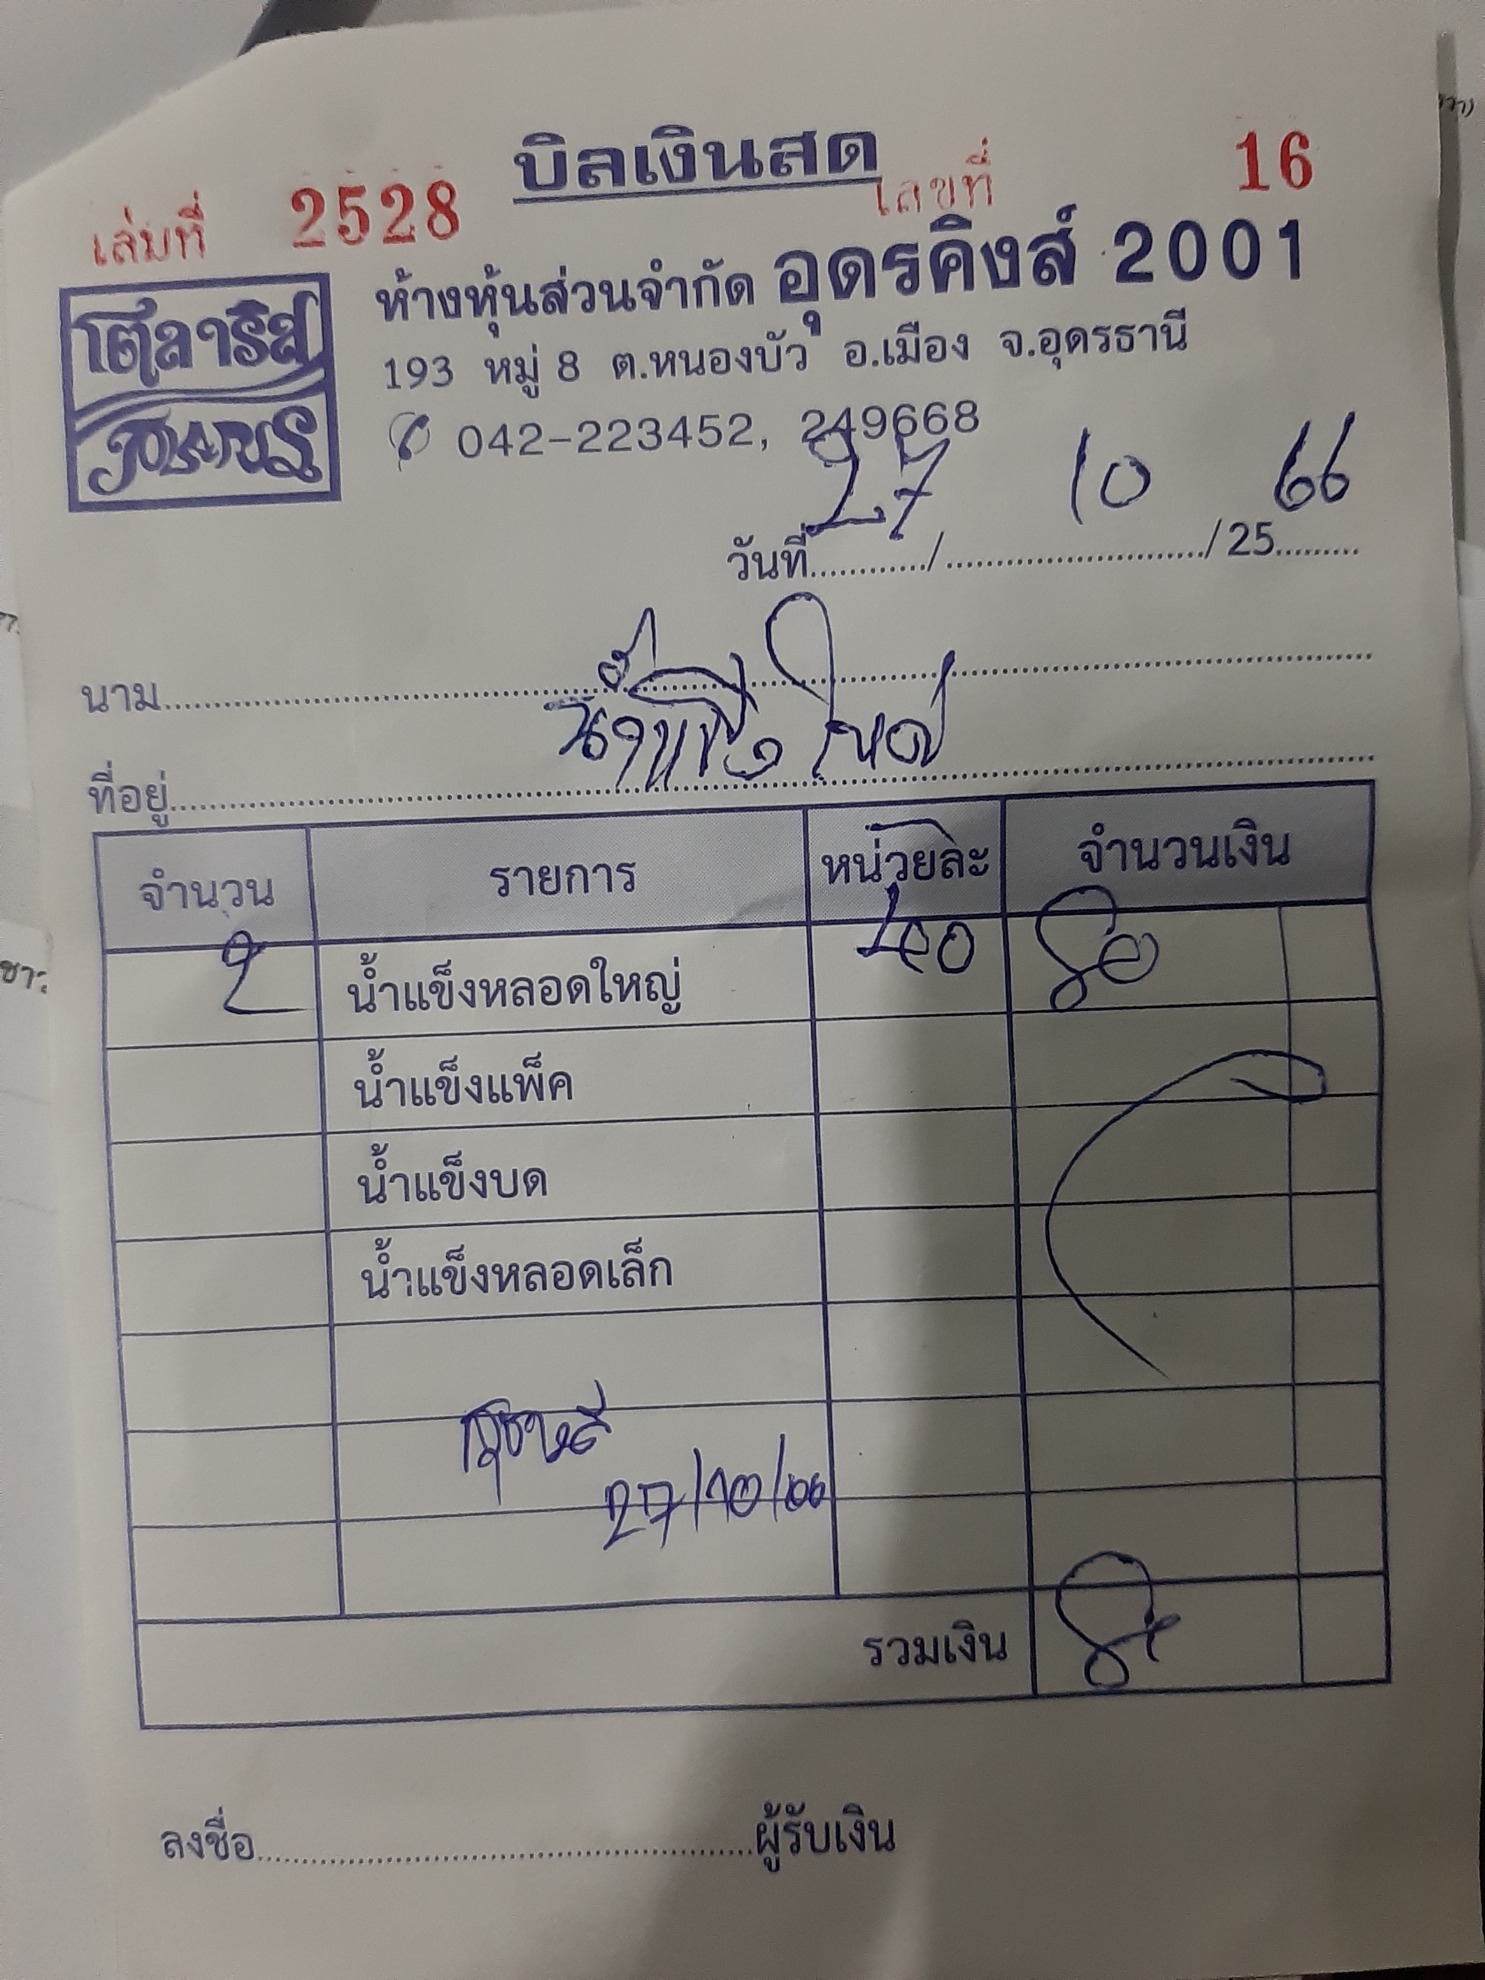 บิลเงินสด
เล่มที่ 2528 เลขที่ 16
ห้างหุ้นส่วนจำกัด อุดรคิงส์ 2001
193 หมู่ 8 ต.หนองบัว อ.เมือง จ.อุดรธานี
042-223452, 249668
วันที่ 27 / 10 / 25 66
นาม
น้ำแข็งใหญ่
ที่อยู่
จำนวน รายการ หน่วยละ จำนวนเงิน
2 น้ำแข็งหลอดใหญ่ 40 80
น้ำแข็งแพ็ค
น้ำแข็งบด
น้ำแข็งหลอดเล็ก
27/10/66
รวมเงิน
ลงชื่อ ผู้รับเงิน